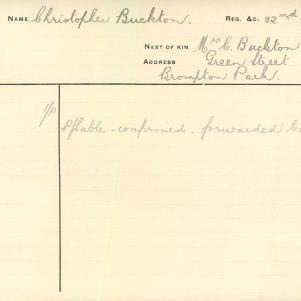 NAME Christopher Buckton. REG. &C. 32nd
NEXT OF KIN Mrs C. Buckton
ADDRESS Green Street
Brompton Park.
confirmed - forwarded